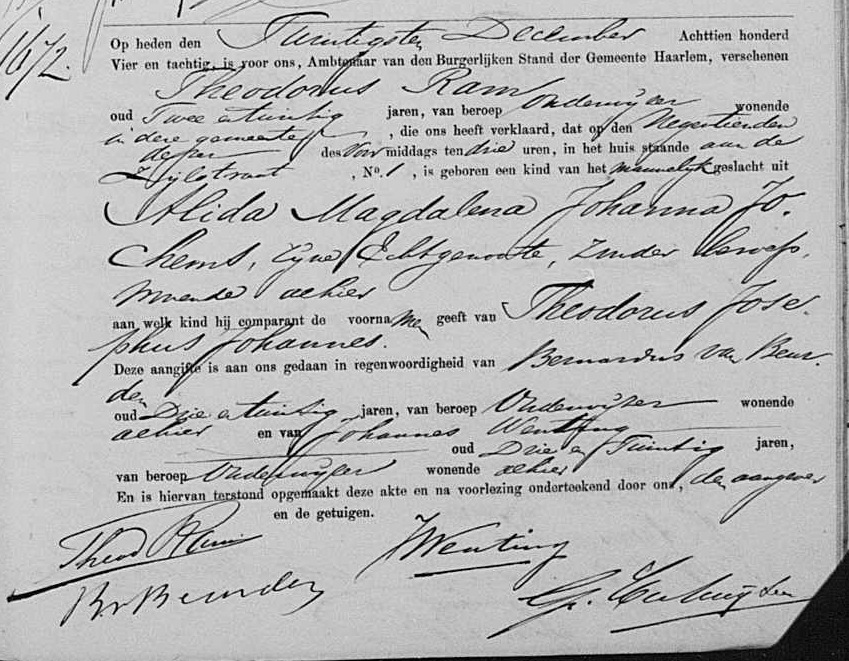 1672.
Op heden den Twintigsten December Achttien honderd
Vier en tachtig, is voor ons, Ambtenaar van den Burgerlijken Stand der Gemeente Haarlem, verschenen
Theodorus Ram
oud Twee en twintig jaren, van beroep Onderwijzer wonende
in deze gemeente, die ons heeft verklaard, dat op den Negentienden
dezer des Voormiddags ten drie uren, in het huis staande aan de
Zijlstraat, No. 1, is geboren een kind van het mannelijk geslacht uit
Alida Magdalena Johanna Jo-
chems, zijne Echtgenoote, zonder beroep,
wonende alhier
aan welk kind hij comparant de voornamen geeft van Theodorus Jose-
phus Johannes.
Deze aangifte is aan ons gedaan in tegenwoordigheid van Bernardus van Beur-
den
oud Drie en twintig jaren, van beroep Onderwijzer wonende
alhier en van Johannes Wenting
oud Drie en Twintig jaren,
van beroep Onderwijzer wonende alhier
En is hiervan terstond opgemaakt deze akte en na voorlezing onderteekend door ons, den aangever
en de getuigen.
Theod Ram
JWenting
BvBeurden